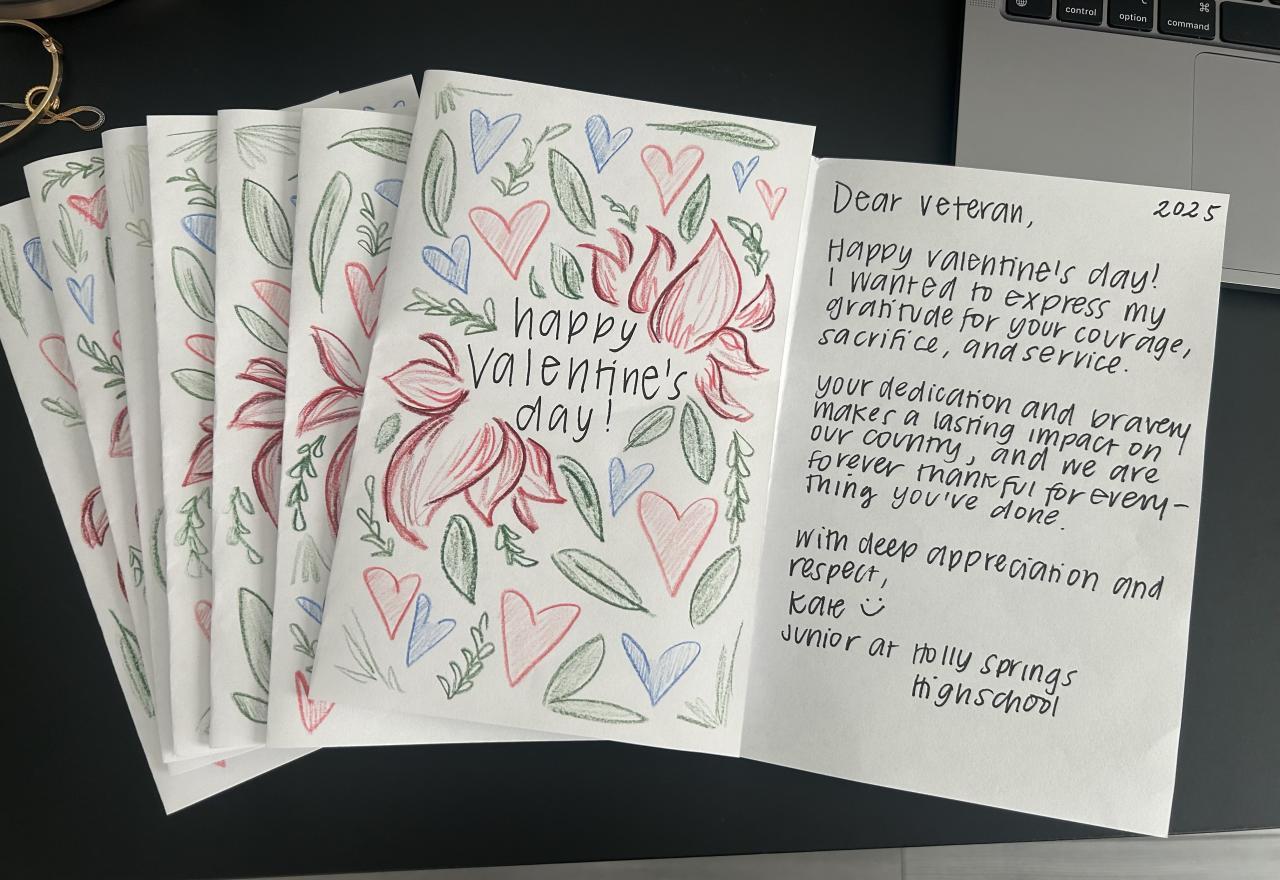 control
option
⌘
command
happy
Valentine's
day!
Dear veteran,
2025
Happy valentine's day!
I wanted to express my
gratitude for your courage,
sacrifice, and service.
your dedication and bravery
makes a lasting impact on
our country, and we are
forever thankful for every-
thing you've done.
with deep appreciation and
respect,
Kate
Junior at Holly Springs
Highschool